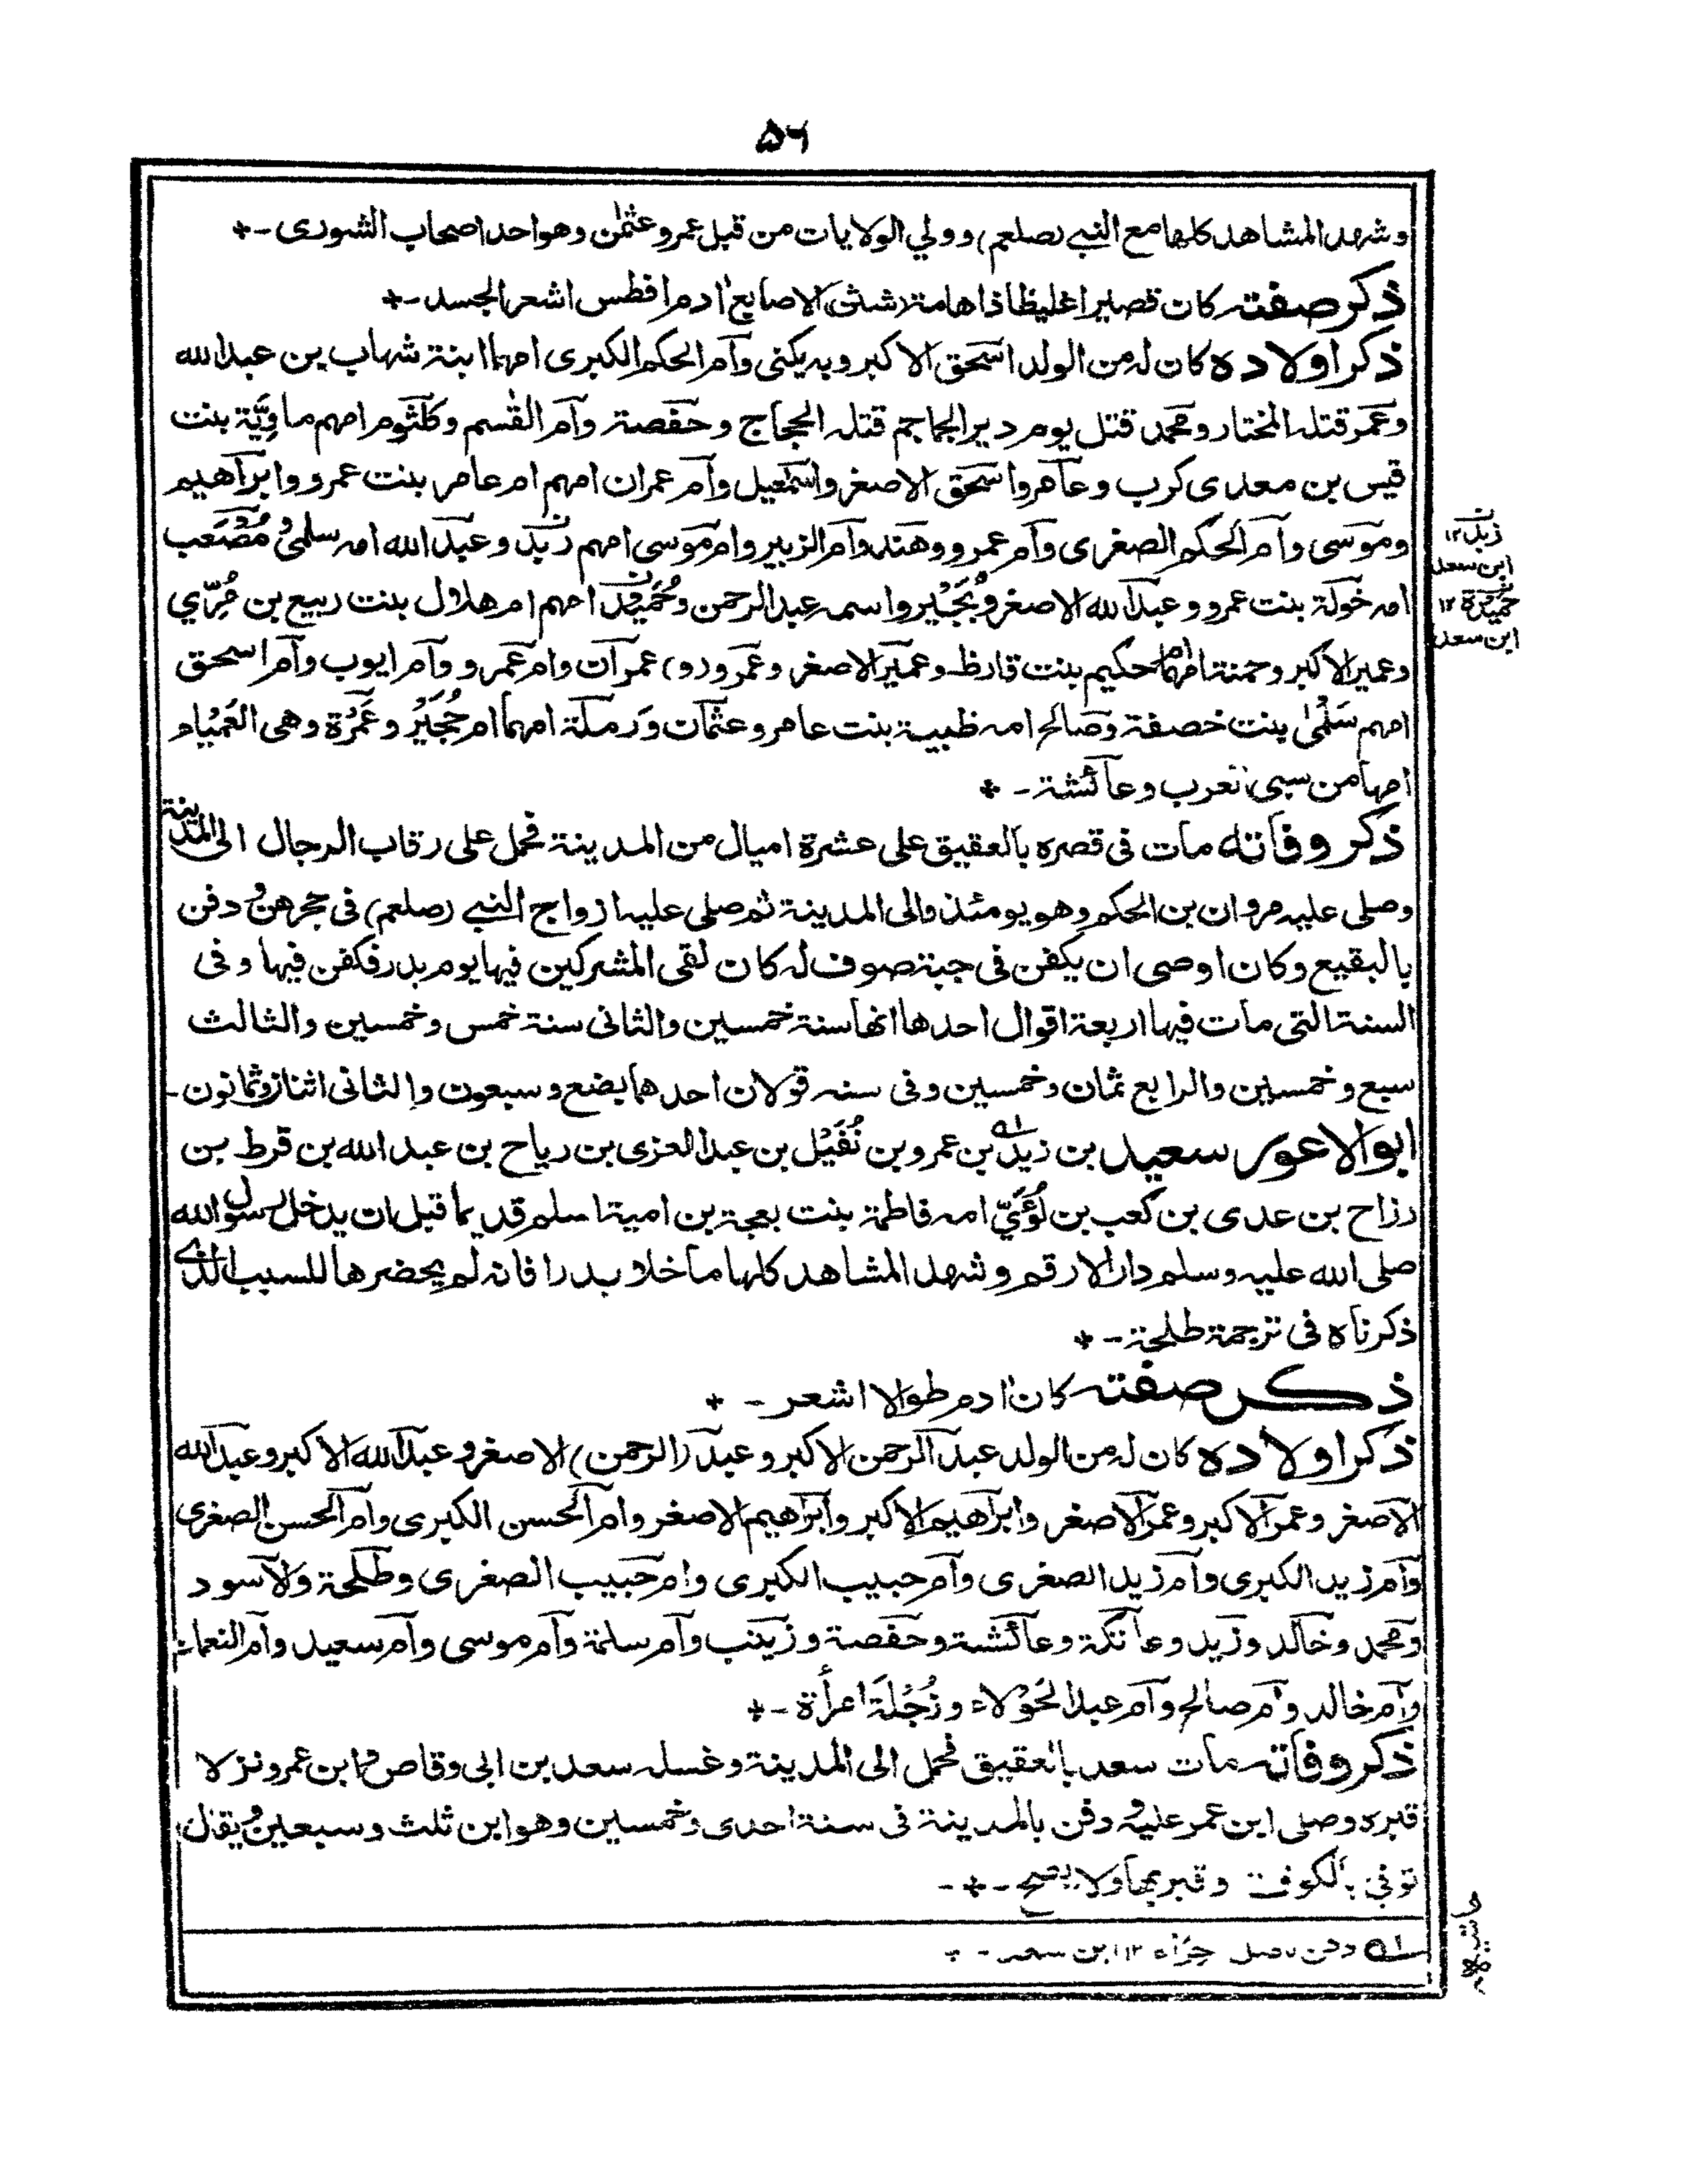 ۵۶
وشهد المشاهد كلها مع النبي (صلعم) وولي الولايات من قبل عمر وعثمٰن وهو احد اصحاب الشورى -*
ذكر صفته كان قصيرا غليظا ذا هامة (شثن) الاصابع اٰدم افطس اشعر الجسد -*
ذكر اولاده كان له من الولد اسحٰق الاكبر وبه يكنى وام الحكم الكبرى امهما ابنة شهاب بن عبد الله
وعمر قتله المختار ومحمد قتل يوم دير الجماجم قتله الحجاج وحفصة وام القٰسم وكلثوم امهم ماوِيَّة بنت
قيس بن معدى كرب وعامر واسحٰق الاصغر واسمٰعيل وام عمران امهم ام عامر بنت عمرو وابراهيم
وموسى وام الحكم الصغرى وام عمرو وهند وام الزبير وام موسى امهم زبد وعبد الله امه سلمىٰ ومُصْعَب
امه خولة بنت عمرو وعبد الله الاصغر وبُجَيْر واسمه عبد الرحمن وحُمَيْد امهم ام هلال بنت ربيع بن مُرّي
وعمير الاكبر وحمنة امهما ام حكيم بنت قارظ وعمير الاصغر وعمرو (و) عمران وام عمرو وام ايوب وام اسحٰق
امهم سَلْمىٰ بنت خصفة وصالح امه ظبية بنت عامر وعثمان ورملة امهما ام حُجَيْر وعَمْرَة وهى العَمْياء
امها من سبى العرب وعائشة - *
ذكر وفاته مات فى قصره بالعقيق على عشرة اميال من المدينة فحمل على رقاب الرجال الى المدينة
وصلى عليه مروان بن الحكم وهو يومئذ والى المدينة ثم صلى عليه ازواج النبي (صلعم) فى حجرهن ودفن
بالبقيع وكان اوصى ان يكفن فى جبة صوف له كان لقى المشركين فيها يوم بدر فكفن فيها وفى
السنة التى مات فيها اربعة اقوال احدها انها سنة خمسين والثانى سنة خمس وخمسين والثالث
سبع وخمسين والرابع ثمان وخمسين وفى سنه قولان احدهما بضع وسبعون والثانى اثنان وثمانون -
ابو الاعور سعيد بن زيد بن عمرو بن نُفَيْل بن عبد العزى بن رياح بن عبد الله بن قرط بن
رزاح بن عدى بن كعب بن لُؤَيّ امه فاطمة بنت بعجة بن امية اسلم قديما قبل ان يدخل رسول الله
صلى الله عليه وسلم دار الارقم وشهد المشاهد كلها ما خلا بدرا فانه لم يحضرها للسبب الذي
ذكرناه فى ترجمة طلحة - *
ذكر صفته كان اٰدم طوالا اشعر - *
ذكر اولاده كان له من الولد عبد الرحمن الاكبر وعبد (الرحمن) الاصغر وعبد الله الاكبر وعبد الله
الاصغر وعمر الاكبر وعمر الاصغر وابراهيم الاكبر وابراهيم الاصغر وام الحسن الكبرى وام الحسن الصغرى
وام زيد الكبرى وام زيد الصغرى وام حبيب الكبرى وام حبيب الصغرى وطلحة والاسود
ومحمد وخالد وزيد وعاتكة وعائشة وحفصة وزينب وام سلمة وام موسى وام سعيد وام النعمان
وام خالد وام صالح وام عبد الحَوْلاء وزُجْلَة امرأة -*
ذكر وفاته مات سعد بالعقيق فحمل الى المدينة وغسله سعد بن ابى وقاص وابن عمر ونزلا
قبره وصلى ابن عمر عليه ودفن بالمدينة فى سنة احدى وخمسين وهو ابن ثلث وسبعين ويقال
توفى بالكوفة وقبر بها ولا يصح -*-
زبد ١٢
ابن سعد
حميدة ١٢
ابن سعد
حاشيه
؎١ دفن ١٢ ابن سعد -